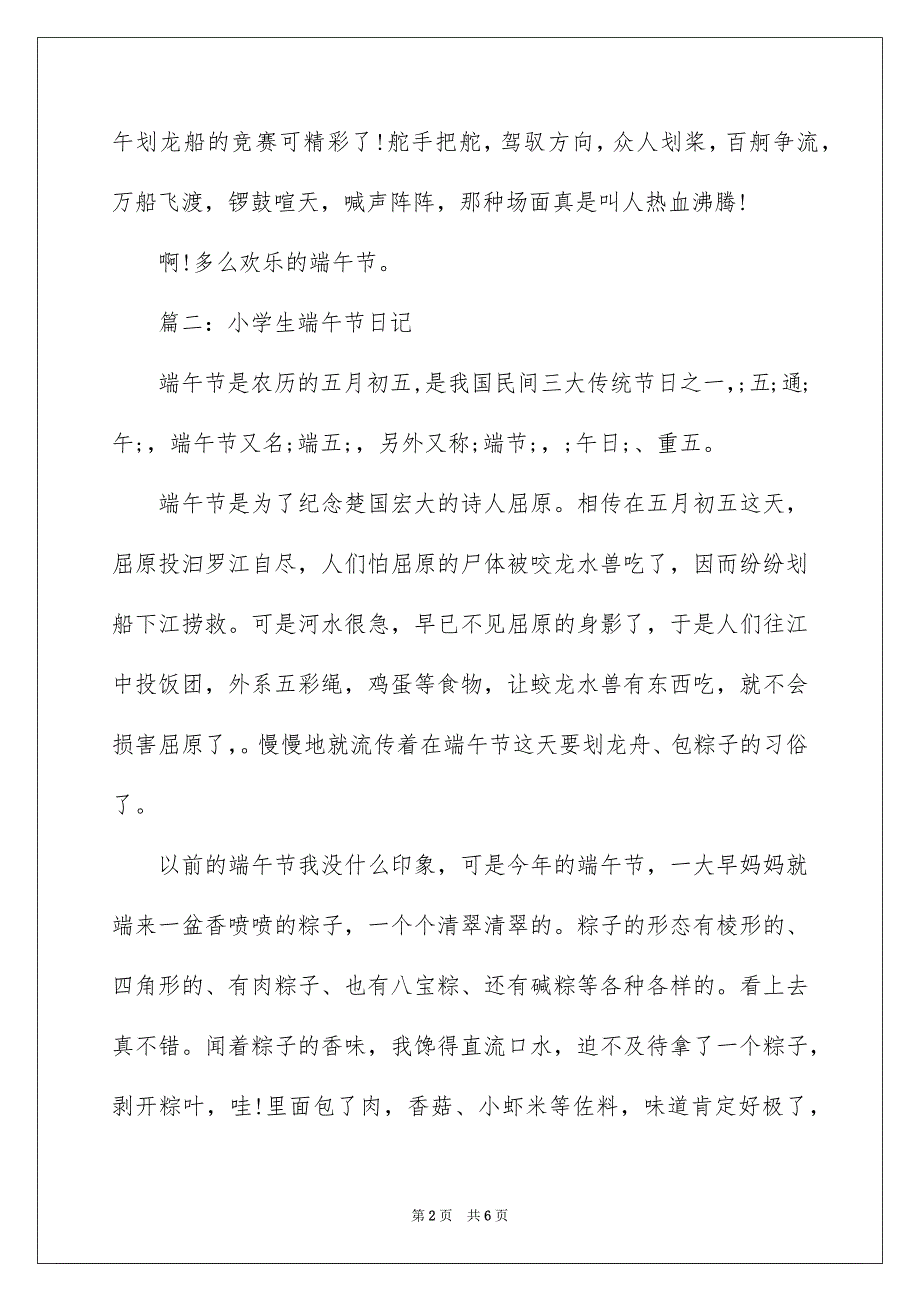 午划龙船的竞赛可精彩了!舵手把舵，驾驭方向，众人划桨，百舸争流，
万船飞渡，锣鼓喧天，喊声阵阵，那种场面真是叫人热血沸腾!
啊!多么欢乐的端午节。
篇二：小学生端午节日记
端午节是农历的五月初五,是我国民间三大传统节日之一，;五;通;
午;，端午节又名;端五;，另外又称;端节;，;午日;、重五。
端午节是为了纪念楚国宏大的诗人屈原。相传在五月初五这天，
屈原投汩罗江自尽，人们怕屈原的尸体被咬龙水兽吃了，因而纷纷划
船下江捞救。可是河水很急，早已不见屈原的身影了，于是人们往江
中投饭团，外系五彩绳，鸡蛋等食物，让蛟龙水兽有东西吃，就不会
损害屈原了，。慢慢地就流传着在端午节这天要划龙舟、包粽子的习俗
了。
以前的端午节我没什么印象，可是今年的端午节，一大早妈妈就
端来一盆香喷喷的粽子，一个个清翠清翠的。粽子的形态有棱形的、
四角形的、有肉粽子、也有八宝粽、还有碱粽等各种各样的。看上去
真不错。闻着粽子的香味，我馋得直流口水，迫不及待拿了一个粽子，
剥开粽叶，哇!里面包了肉，香菇、小虾米等佐料，味道肯定好极了，
第 2 页 共 6 页